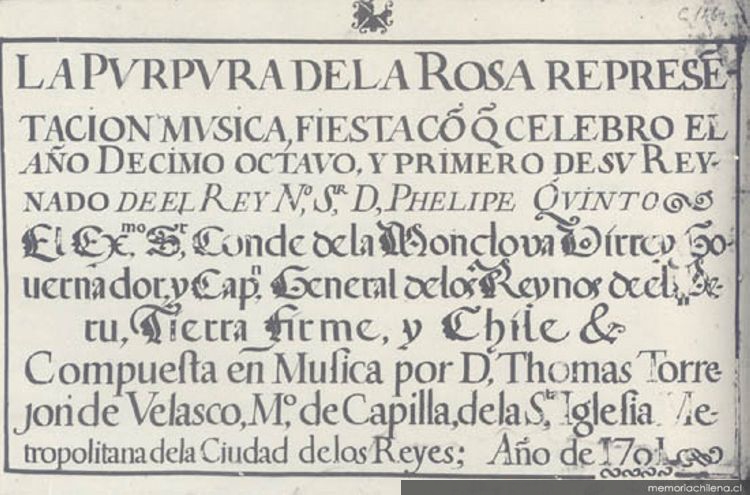 LA PVRPVRA DE LA ROSA REPRESĒ-
TACION MVSICA, FIESTA CŌ Q̃ CELEBRO EL
AÑO DECIMO OCTAVO, Y PRIMERO DE SV REY-
NADO DE EL REY Nº, Sᴿ, D, PHELIPE QVINTO
El Exᵐᵒ, Sʳ, Conde de la Monclova Virrey Go-
uernador, y Capⁿ, General de los Reynos de el Pe-
ru, Tierra Firme, y Chile &
Compuesta en Musica por D, Thomas Torre-
jon de Velasco, Mº, de Capilla, de la Sᵗᵃ Iglesia Me-
tropolitana de la Ciudad de los Reyes; Año de 1701
memoriachilena.cl